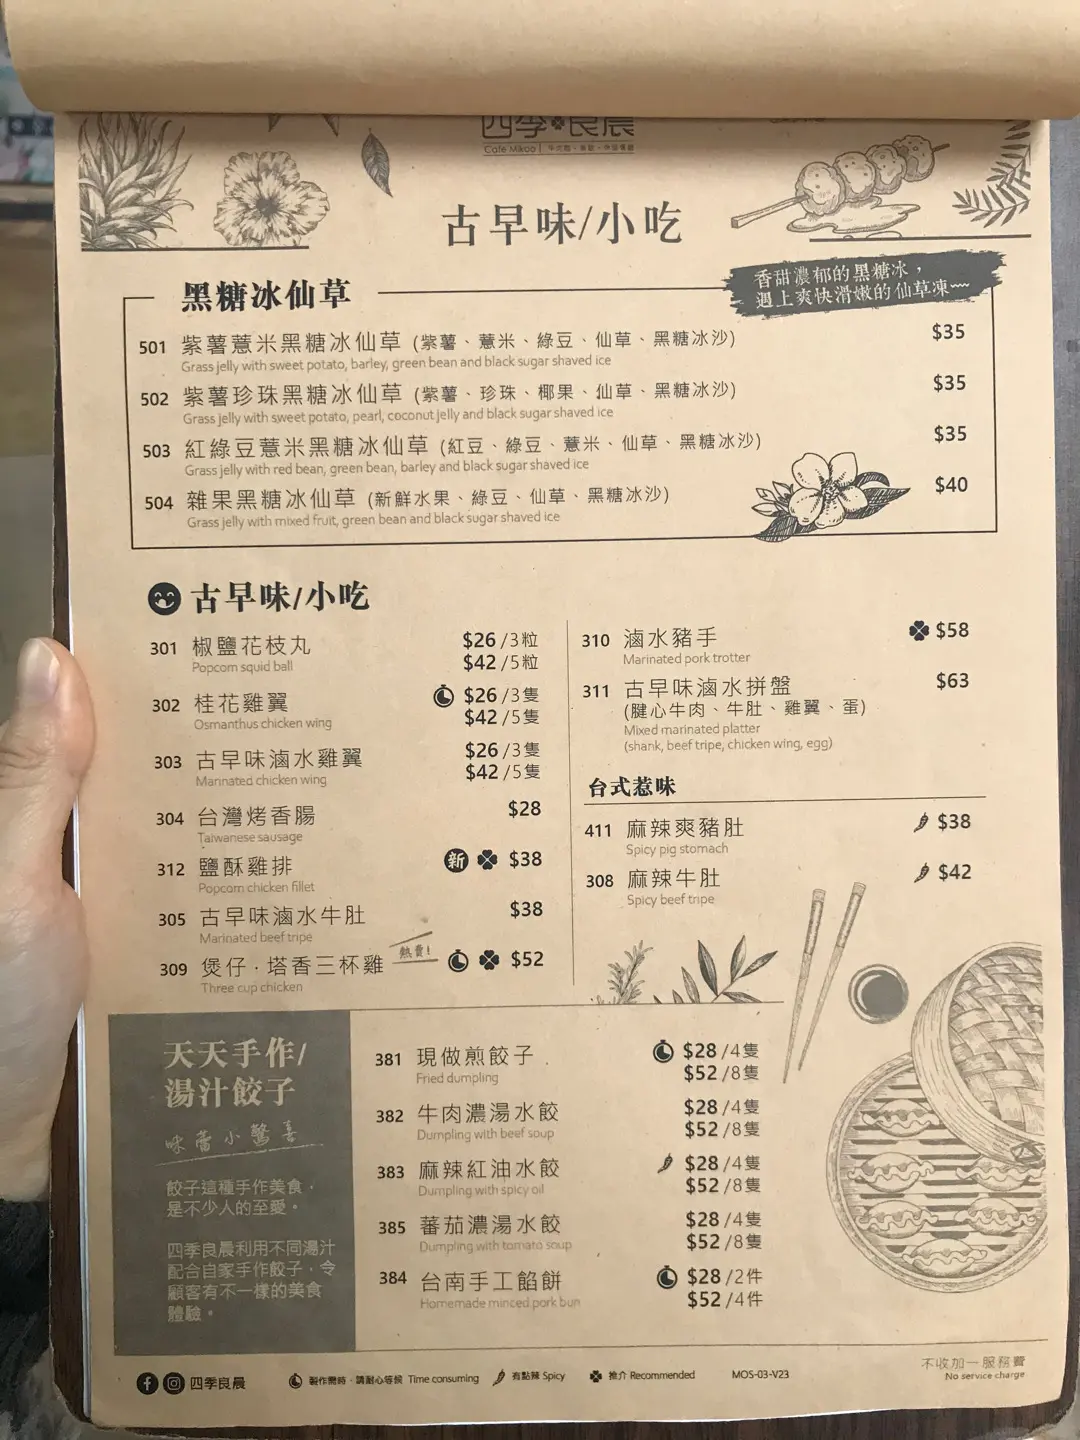 四季良晨
Cafe Mikoo
古早味/小吃
香甜濃郁的黑糖冰，
遇上爽快滑嫩的仙草凍~~
黑糖冰仙草
501 紫薯薏米黑糖冰仙草 (紫薯、薏米、綠豆、仙草、黑糖冰沙) $35
Grass jelly with sweet potato, barley, green bean and black sugar shaved ice
502 紫薯珍珠黑糖冰仙草 (紫薯、珍珠、椰果、仙草、黑糖冰沙) $35
Grass jelly with sweet potato, pearl, coconut jelly and black sugar shaved ice
503 紅綠豆薏米黑糖冰仙草 (紅豆、綠豆、薏米、仙草、黑糖冰沙) $35
Grass jelly with red bean, green bean, barley and black sugar shaved ice
504 雜果黑糖冰仙草 (新鮮水果、綠豆、仙草、黑糖冰沙) $40
Grass jelly with mixed fruit, green bean and black sugar shaved ice
古早味/小吃
301 椒鹽花枝丸 $26/3粒
Popcorn squid ball $42/5粒
302 桂花雞翼 $26/3隻
Osmanthus chicken wing $42/5隻
303 古早味滷水雞翼 $26/3隻
Marinated chicken wing $42/5隻
304 台灣烤香腸 $28
Taiwanese sausage
312 鹽酥雞排 新 $38
Popcorn chicken fillet
305 古早味滷水牛肚 $38
Marinated beef tripe
309 煲仔·塔香三杯雞 熱賣! $52
Three cup chicken
310 滷水豬手 $58
Marinated pork trotter
311 古早味滷水拼盤 $63
(腱心牛肉、牛肚、雞翼、蛋)
Mixed marinated platter
(shank, beef tripe, chicken wing, egg)
台式惹味
411 麻辣爽豬肚 $38
Spicy pig stomach
308 麻辣牛肚 $42
Spicy beef tripe
天天手作/
湯汁餃子
味蕾小驚喜
餃子這種手作美食，
是不少人的至愛。
四季良晨利用不同湯汁
配合自家手作餃子，令
顧客有不一樣的美食
體驗。
381 現做煎餃子 $28/4隻
Fried dumpling $52/8隻
382 牛肉濃湯水餃 $28/4隻
Dumpling with beef soup $52/8隻
383 麻辣紅油水餃 $28/4隻
Dumpling with spicy oil $52/8隻
385 蕃茄濃湯水餃 $28/4隻
Dumpling with tomato soup $52/8隻
384 台南手工餡餅 $28/2件
Homemade minced pork bun $52/4件
四季良晨 製作需時，請耐心等候 Time consuming 有點辣 Spicy 推介 Recommended MOS-03-V23
不收加一服務費
No service charge